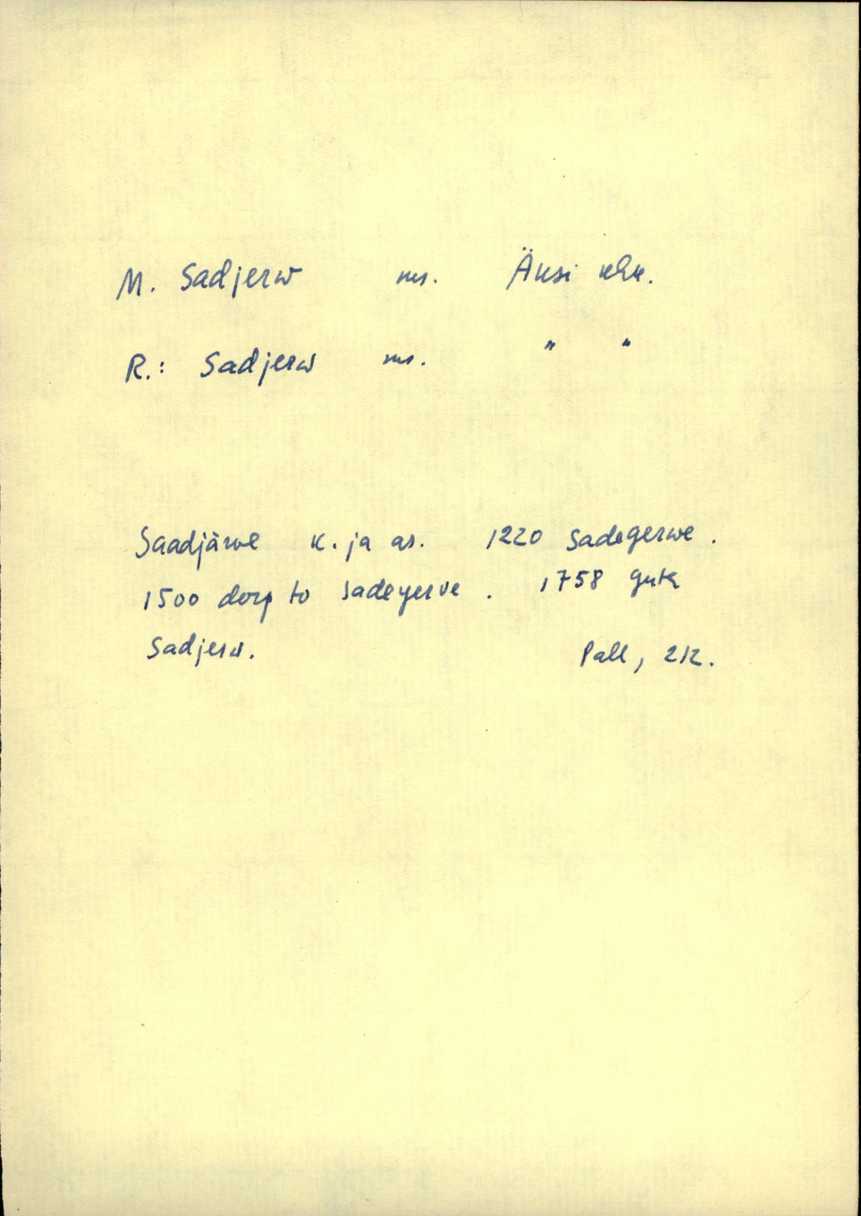 M. Sadjerw ms. Äksi khk.
R.: Sadjerw ms. " "
Saadjärve k. ja as. 1220 Sadegerwe.
1500 dorp to Sadeyerve. 1758 guth
Sadjerw.
Pall, 212.